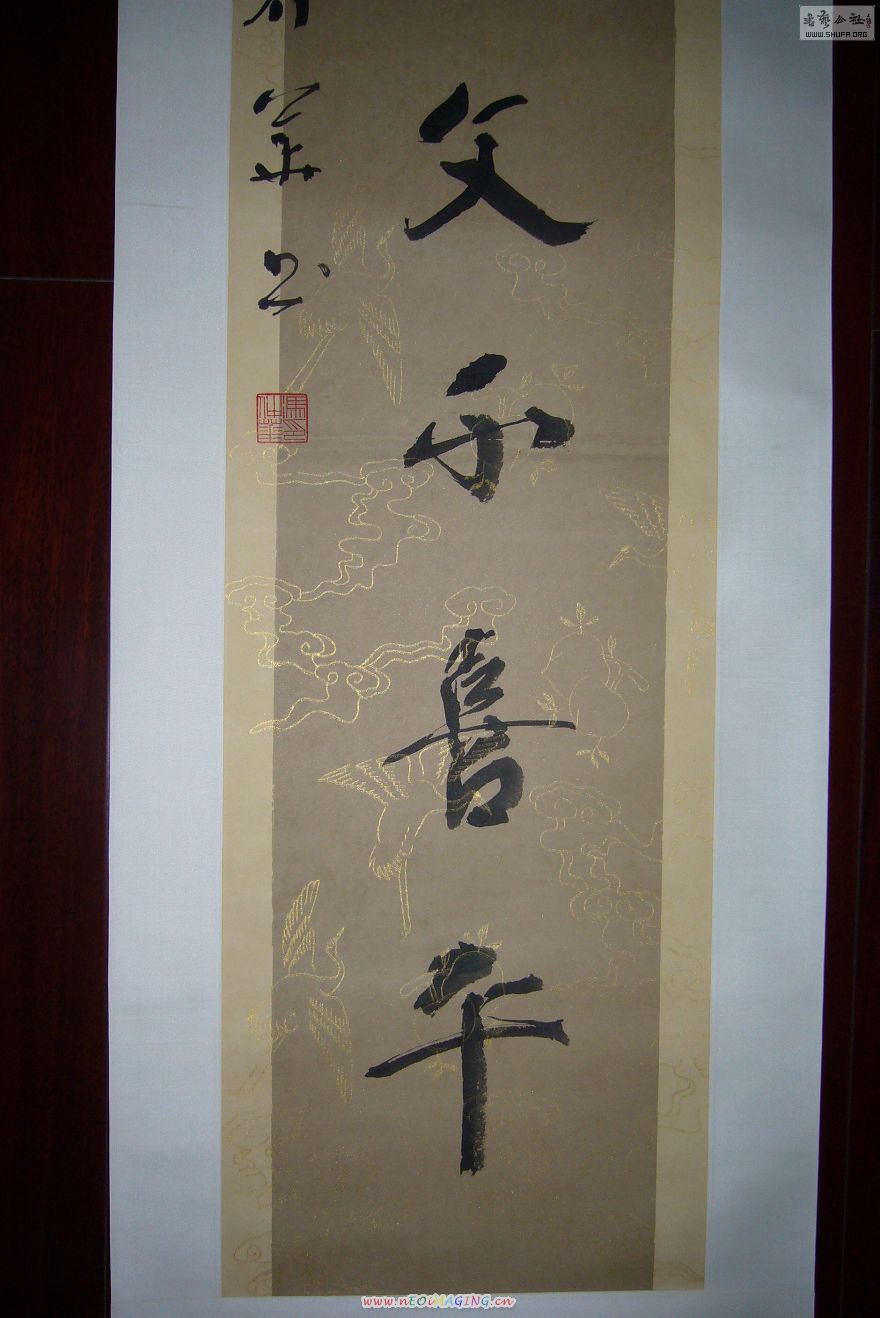 文不喜平
華书
馮印仲華
书艺公社
WWW.SHUFA.ORG
www.nEOiMAGiNG.cn